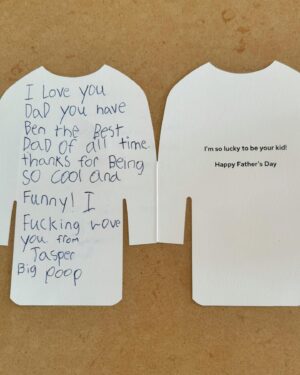 I Love you
Dad you have
Ben the Best
Dad of all time
thanks for Being
so cool and
Funny! I
Fucking wove
you from
Jasper
Big poop
I'm so lucky to be your kid!
Happy Father's Day